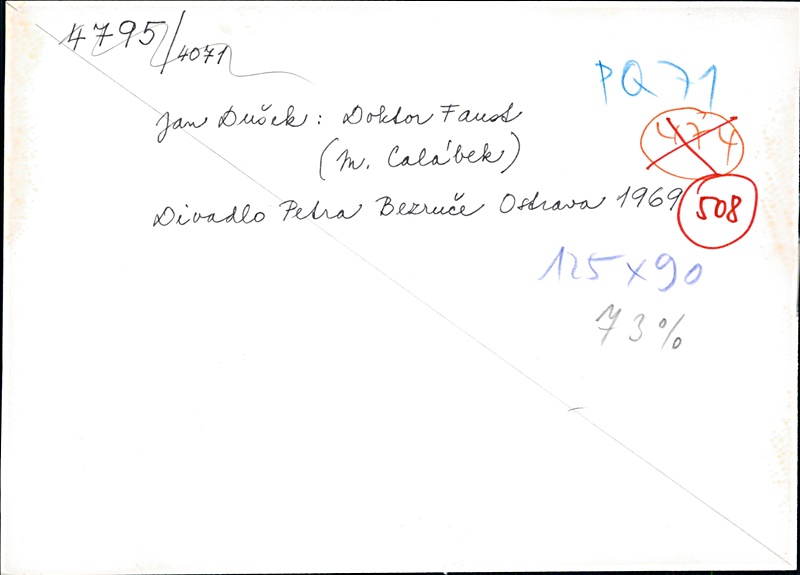 4795/4071
PQ 71
Jan Dušek: Doktor Faust
474
(M. Calábek)
Divadlo Petra Bezruče Ostrava 1969
508
125 x 90
73%